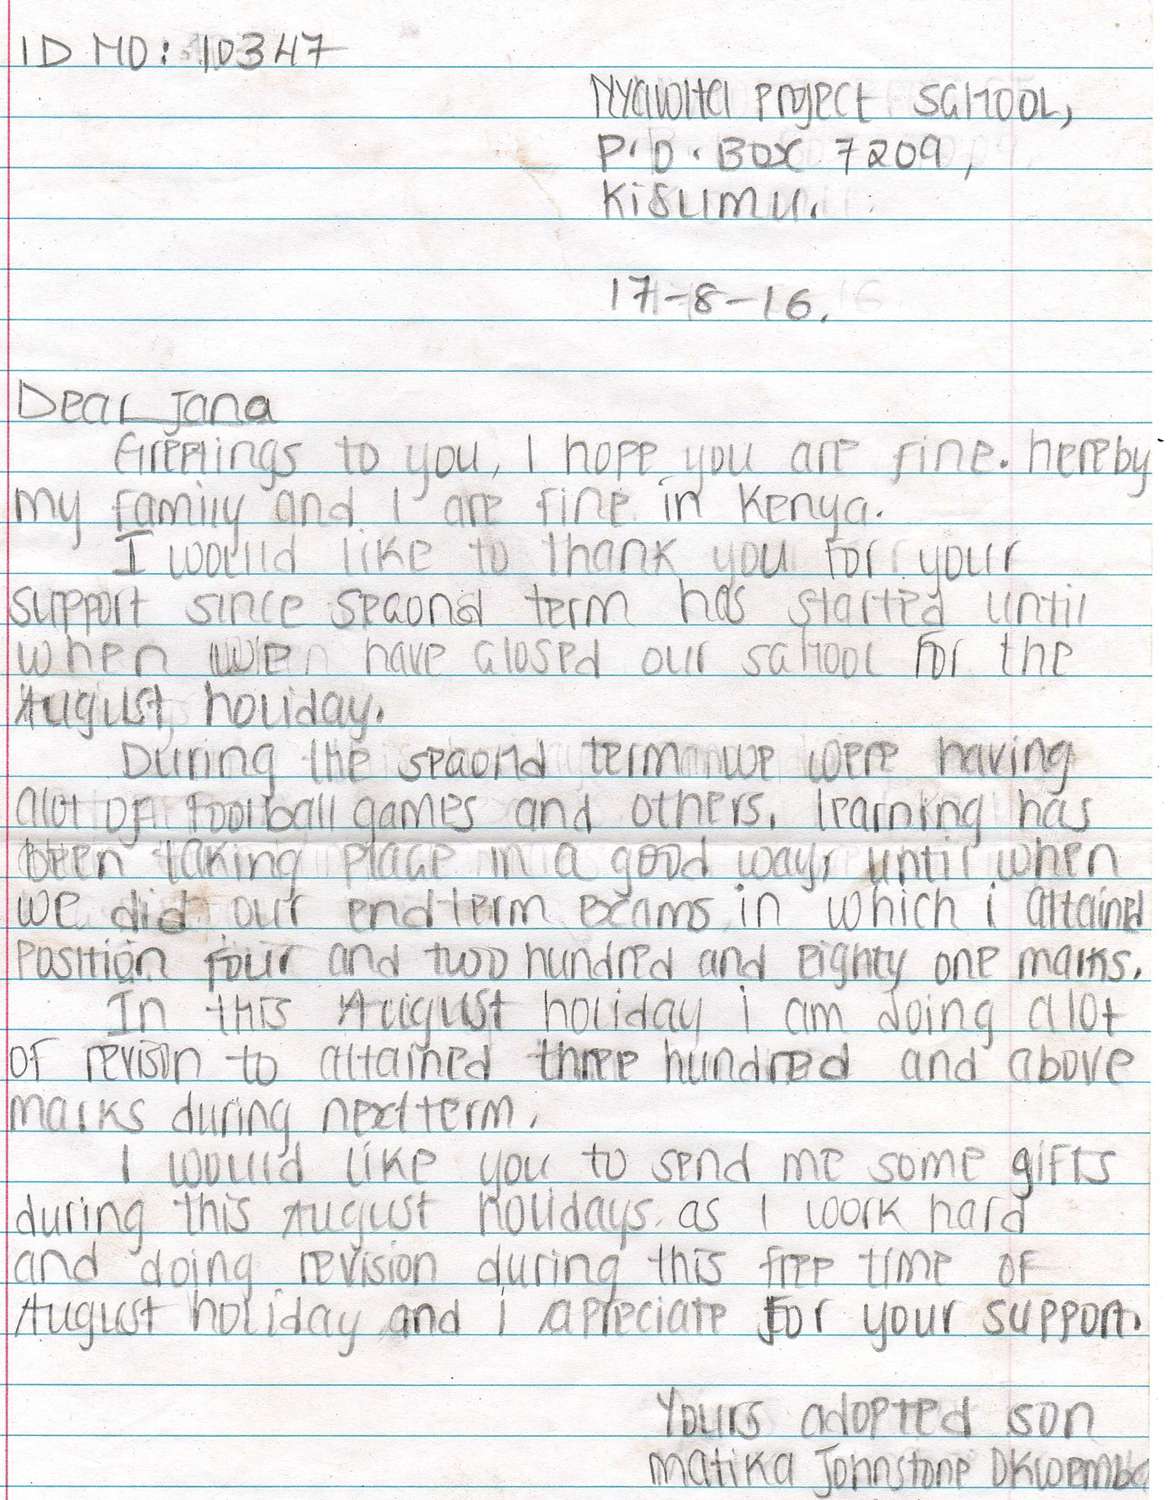 ID NO: 10347
Nyawita project school,
P.O. Box 7209,
Kisumu.
17-8-16.
Dear Jana
Greetings to you, I hope you are fine. hereby
my family and I are fine in Kenya.
I would like to thank you for your
support since second term has started until
when we have closed our school for the
August holiday.
During the second term we were having
alot of football games and others. learning has
been taking place in a good way, until when
we did our endterm exams in which i attained
position four and two hundred and eighty one marks.
In this August holiday i am doing alot
of revison to attained three hundred and above
marks during next term.
I would like you to send me some gifts
during this August holidays. as I work hard
and doing revision during this free time of
August holiday and i apreciate for your support.
Yours adopted son
Matika Johnstone Okwemba